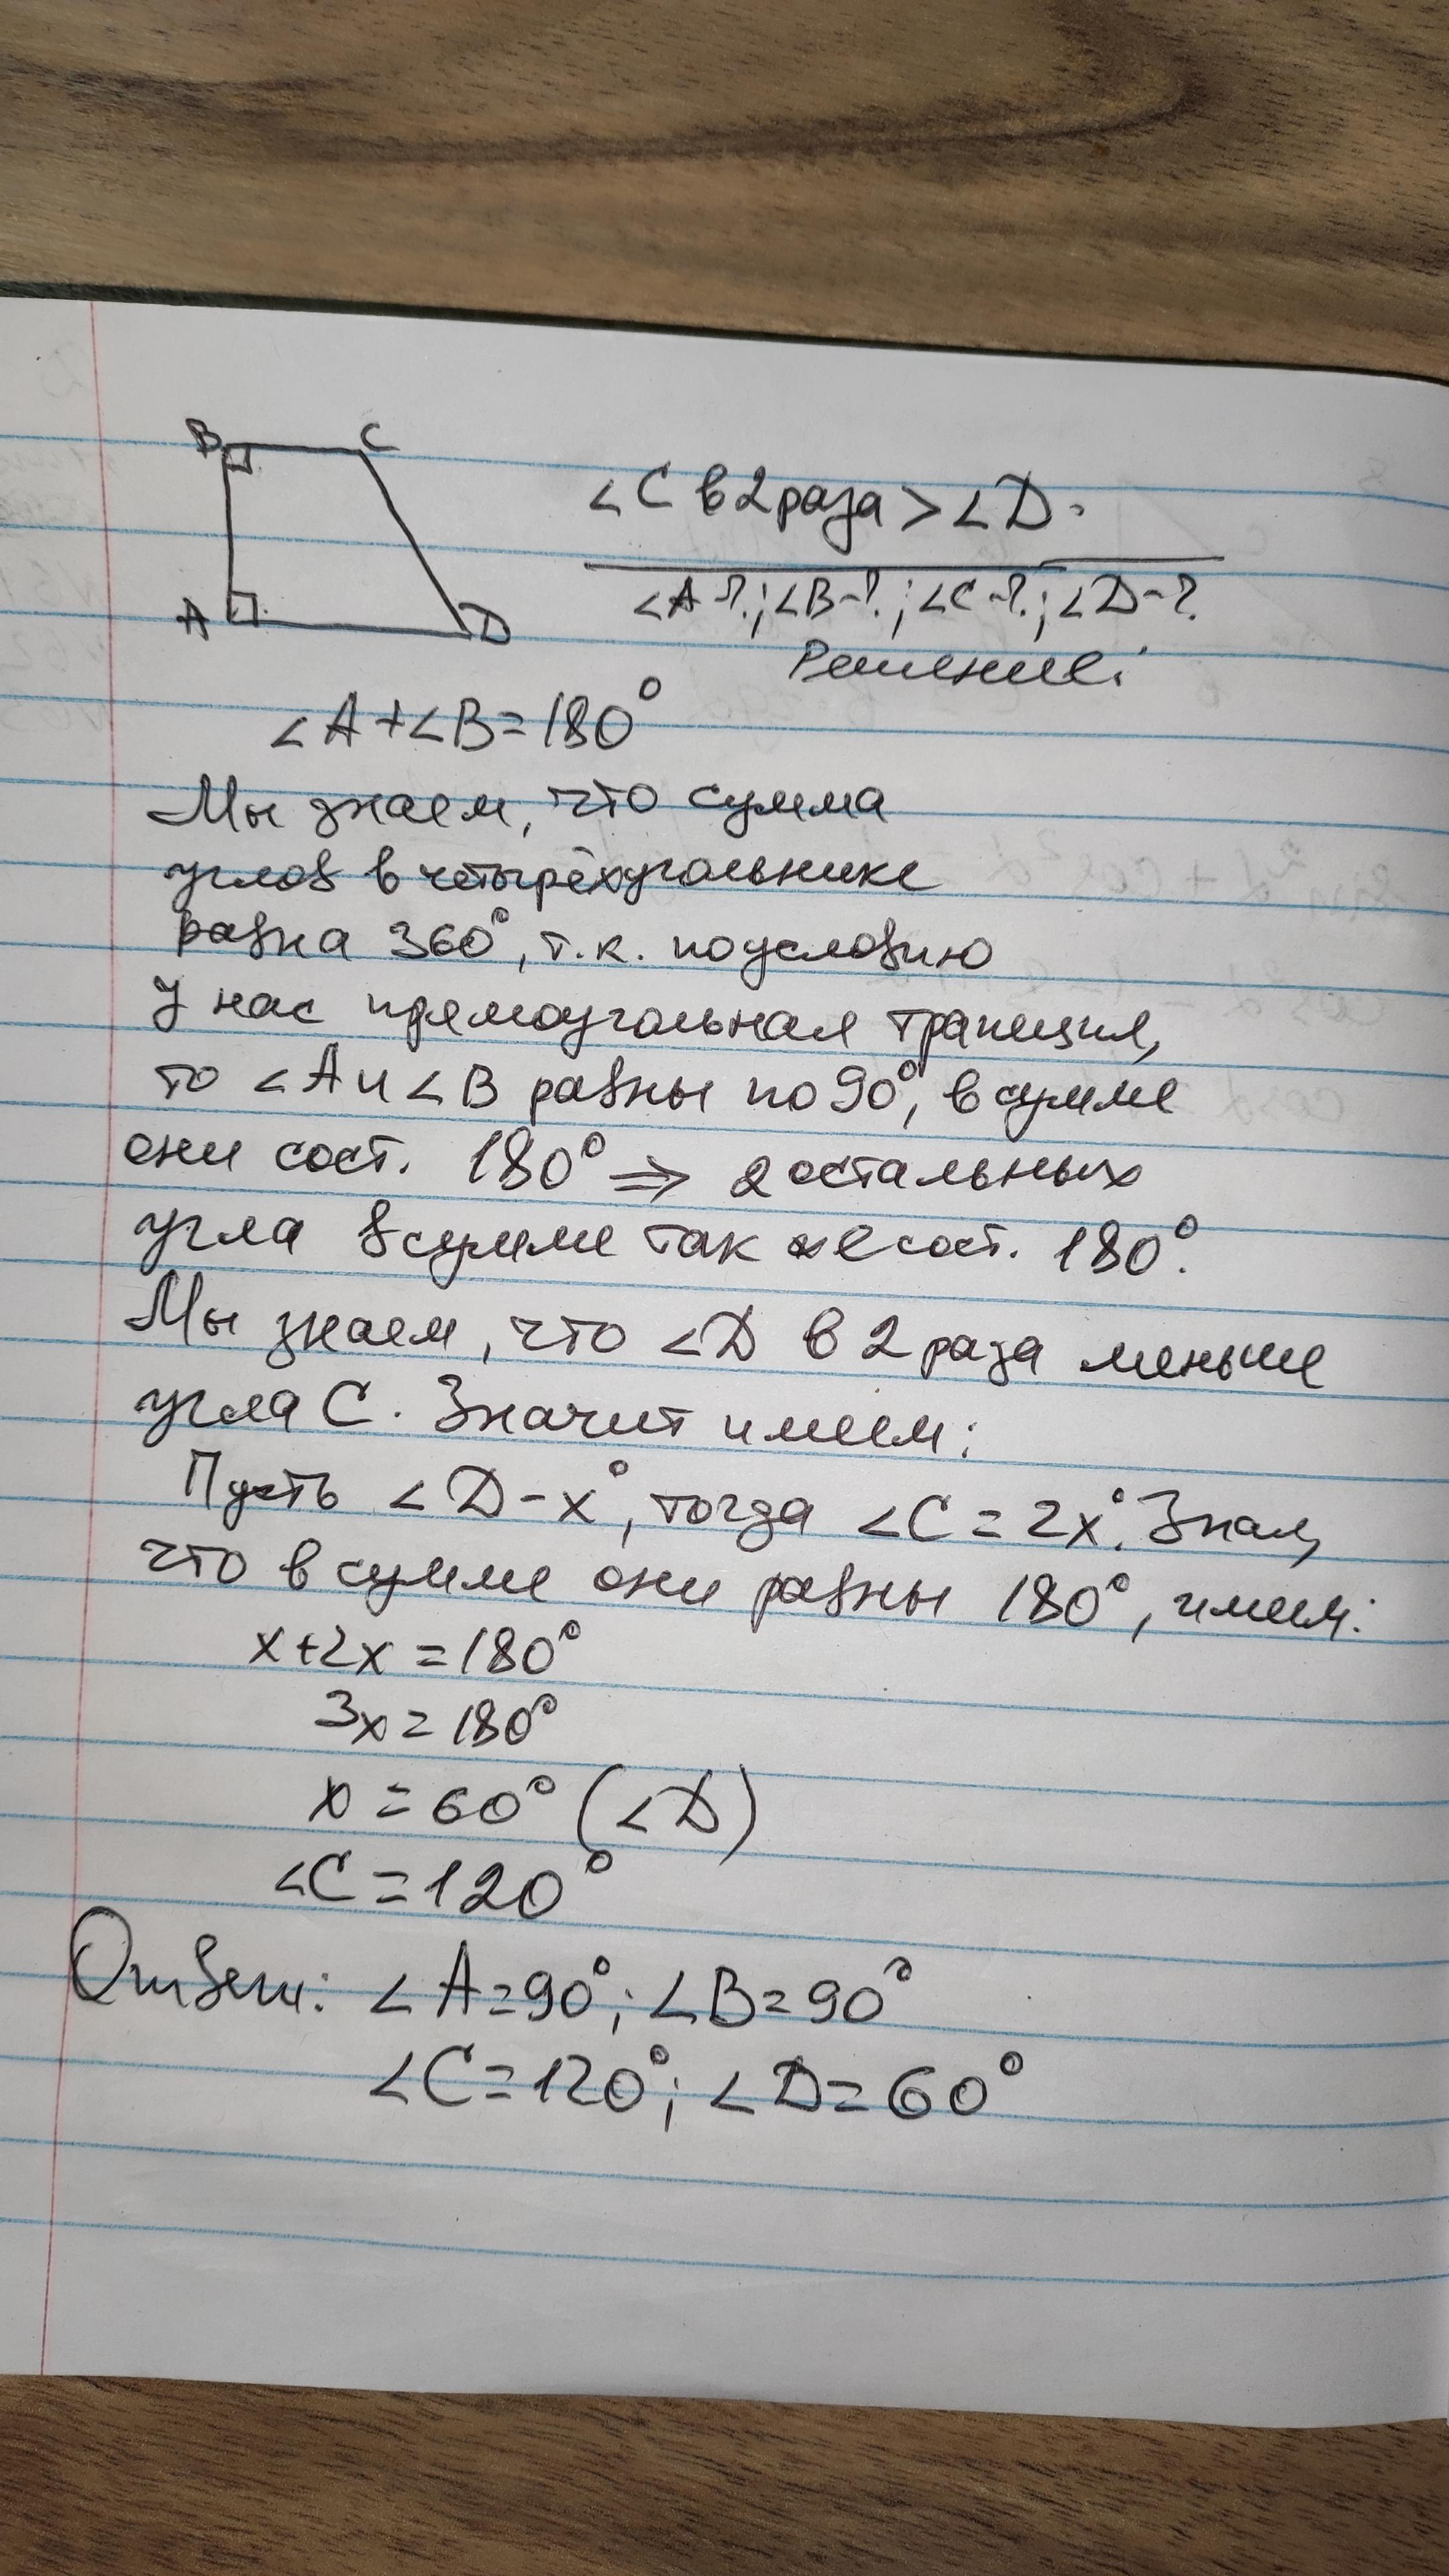 B C
∠C в 2 раза > ∠D.
∠A-?; ∠B-?; ∠C-?; ∠D-?
A D
Решение:
∠A+∠B=180°
Мы знаем, что сумма
углов в четырёхугольнике
равна 360°, т.к. по условию
у нас прямоугольная трапеция,
то ∠A и ∠B равны по 90°, в сумме
они сост. 180° ⇒ 2 остальных
угла в сумме так же сост. 180°.
Мы знаем, что ∠D в 2 раза меньше
угла C. Значит имеем:
Пусть ∠D-x°, тогда ∠C=2x°. Зная,
что в сумме они равны 180°, имеем:
x+2x=180°
3x=180°
x=60° (∠D)
∠C=120°
Ответ: ∠A=90°; ∠B=90°
∠C=120°; ∠D=60°